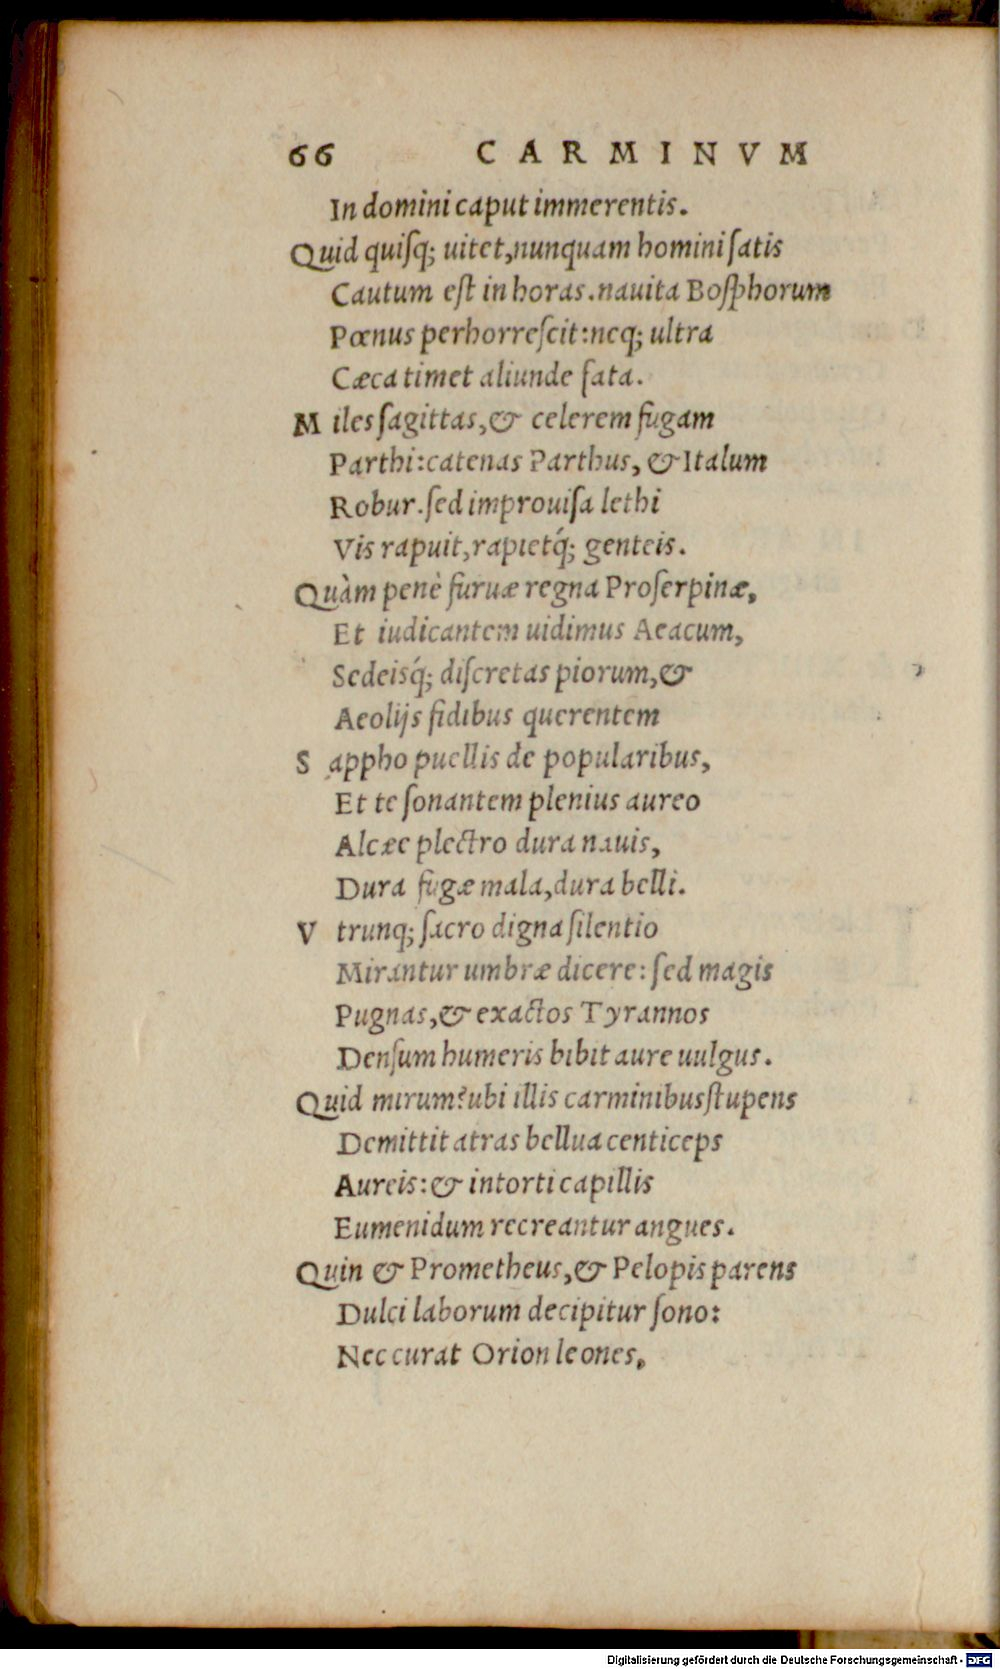 66 CARMINVM
In domini caput immerentis.
Quid quiſq; uitet, nunquam homini ſatis
Cautum eſt in horas. nauita Boſphorum
Pœnus perhorreſcit: neq; ultra
Cæca timet aliunde fata.
M iles ſagittas, & celerem fugam
Parthi: catenas Parthus, & Italum
Robur. ſed improuiſa lethi
Vis rapuit, rapietq́; genteis.
Quàm penè furuæ regna Proſerpinæ,
Et iudicantem uidimus Aeacum,
Sedeisq́; diſcretas piorum, &
Aeolijs fidibus querentem
S appho puellis de popularibus,
Et te ſonantem plenius aureo
Alcæe plectro dura nauis,
Dura fugæ mala, dura belli.
V trunq; ſacro digna ſilentio
Mirantur umbræ dicere: ſed magis
Pugnas, & exactos Tyrannos
Denſum humeris bibit aure uulgus.
Quid mirum? ubi illis carminibus ſtupens
Demittit atras bellua centiceps
Aureis: & intorti capillis
Eumenidum recreantur angues.
Quin & Prometheus, & Pelopis parens
Dulci laborum decipitur ſono:
Nec curat Orion leones,
Digitalisierung gefördert durch die Deutsche Forschungsgemeinschaft - DFG